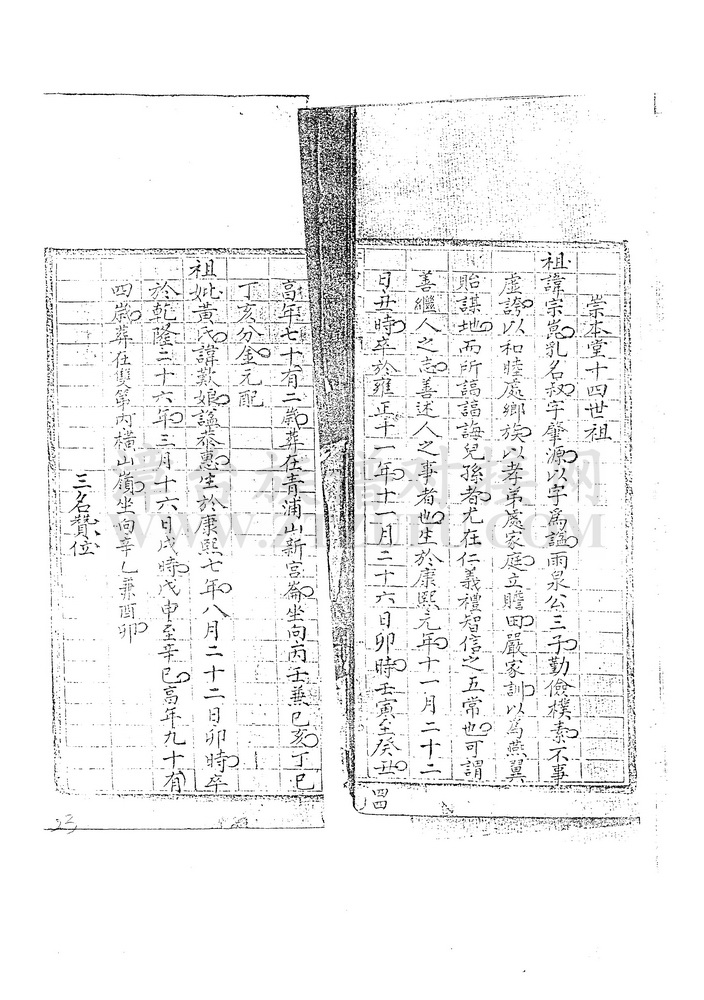 崇本堂十四世祖
祖諱宗崑乳名叔字肇源以字為謚雨泉公三子勤儉樸素不事
虛誇以和睦處鄉族以孝弟處家庭立贍田嚴家訓以為燕翼
貽謀地而所謂誨兒孫者尤在仁義禮智信之五常也可謂
善繼人之志善述人之事者也生於康熙元年十一月二十二
日丑時卒於雍正十一年十一月二十六日卯時壬寅至癸丑
高年七十有二歲葬在青浦山新宮崙坐向丙壬兼巳亥丁巳
丁亥分金元配
祖妣黃氏諱歎娘謚恭惠生於康熙七年八月二十二日卯時卒
於乾隆二十六年三月十六日戌時戊申至辛巳高年九十有
四歲葬在雙第內橫山嶺坐向辛乙兼酉卯
三名贊位
四四
23